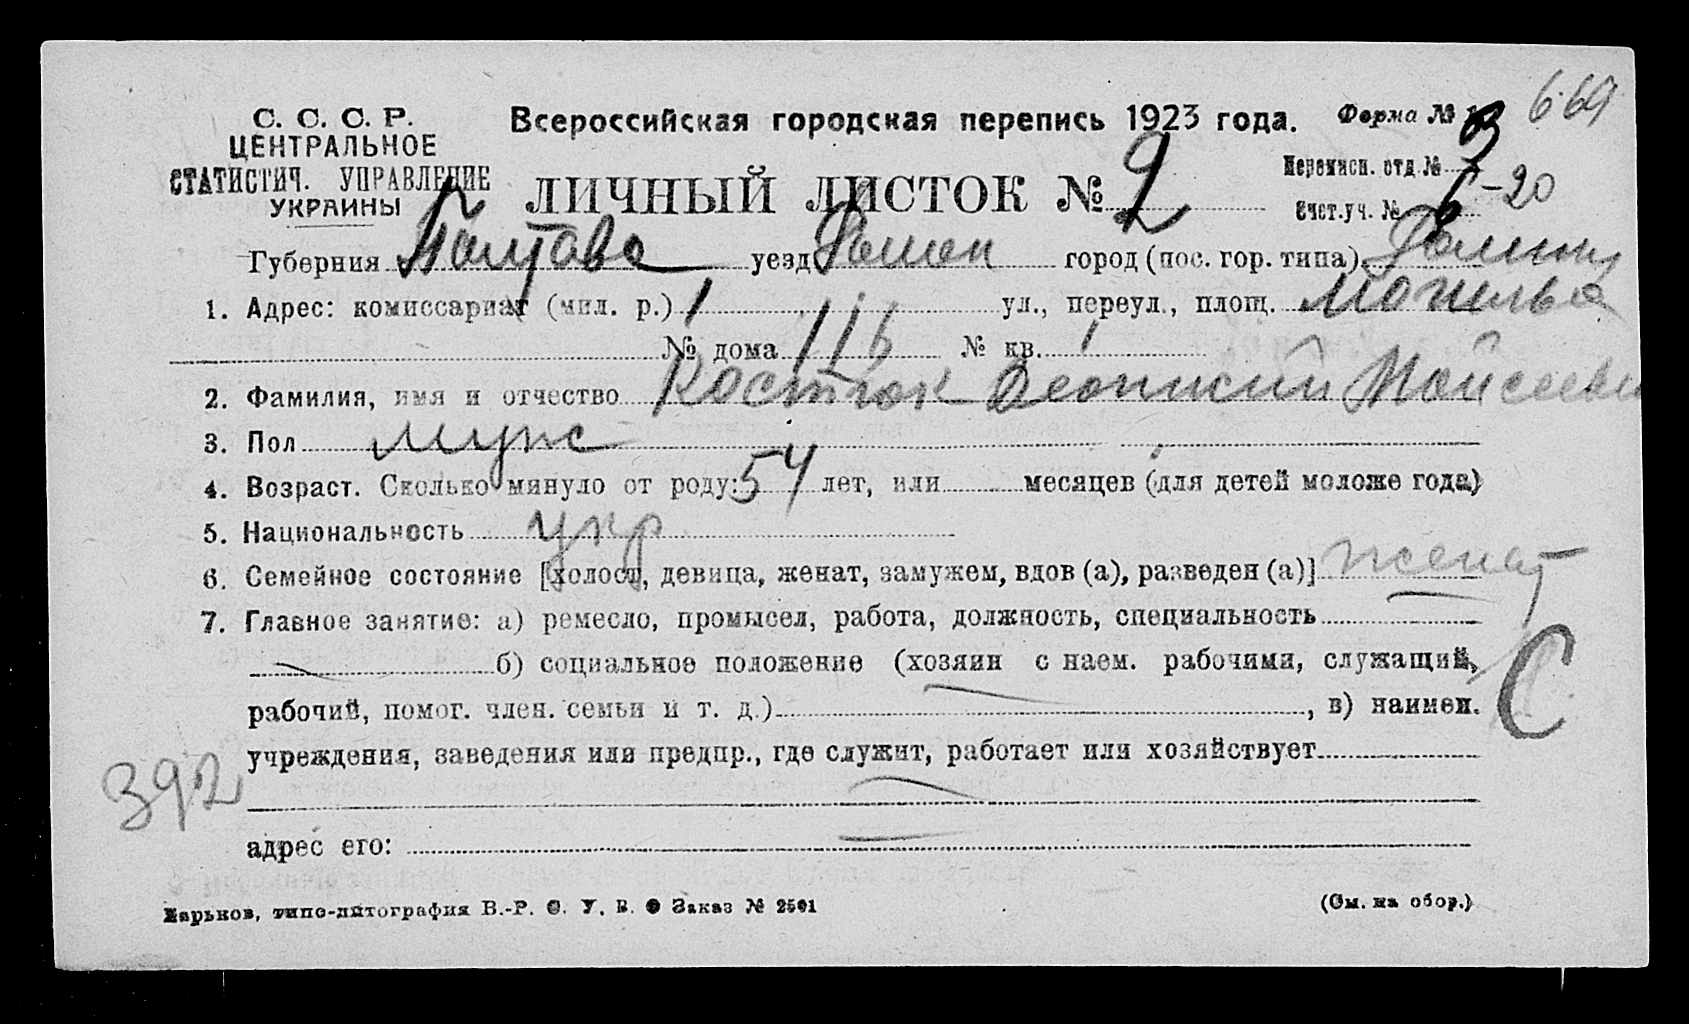 С. С. С. Р.
ЦЕНТРАЛЬНОЕ
СТАТИСТИЧ. УПРАВЛЕНИЕ
УКРАИНЫ
Всероссийская городская перепись 1923 года.
Форма № 1
669
ЛИЧНЫЙ ЛИСТОК № 2
Переписн. отд. № 3
Счет. уч. № 6-20
Губерния Полтава уезд Ромен город (пос. гор. типа)
1. Адрес: комиссариат (мил. р.) 1 ул., переул., площ.
№ дома 116 № кв. 1
2. Фамилия, имя и отчество Костюк Леонтий Мойсееви
3. Пол муж
4. Возраст. Сколько минуло от роду: 54 лет, или месяцев (для детей моложе года)
5. Национальность укр
6. Семейное состояние [холост, девица, женат, замужем, вдов (а), разведен (а)] женат
7. Главное занятие: а) ремесло, промысел, работа, должность, специальность
— б) социальное положение (хозяин с наем. рабочими, служащий,
рабочий, помог. член. семьи и т. д.) —, в) наимен.
С
учреждения, заведения или предпр., где служит, работает или хозяйствует
392
адрес его: —
Харьков, типо-литография В.-Р. С. У. В. Заказ № 2501
(См. на обор.)